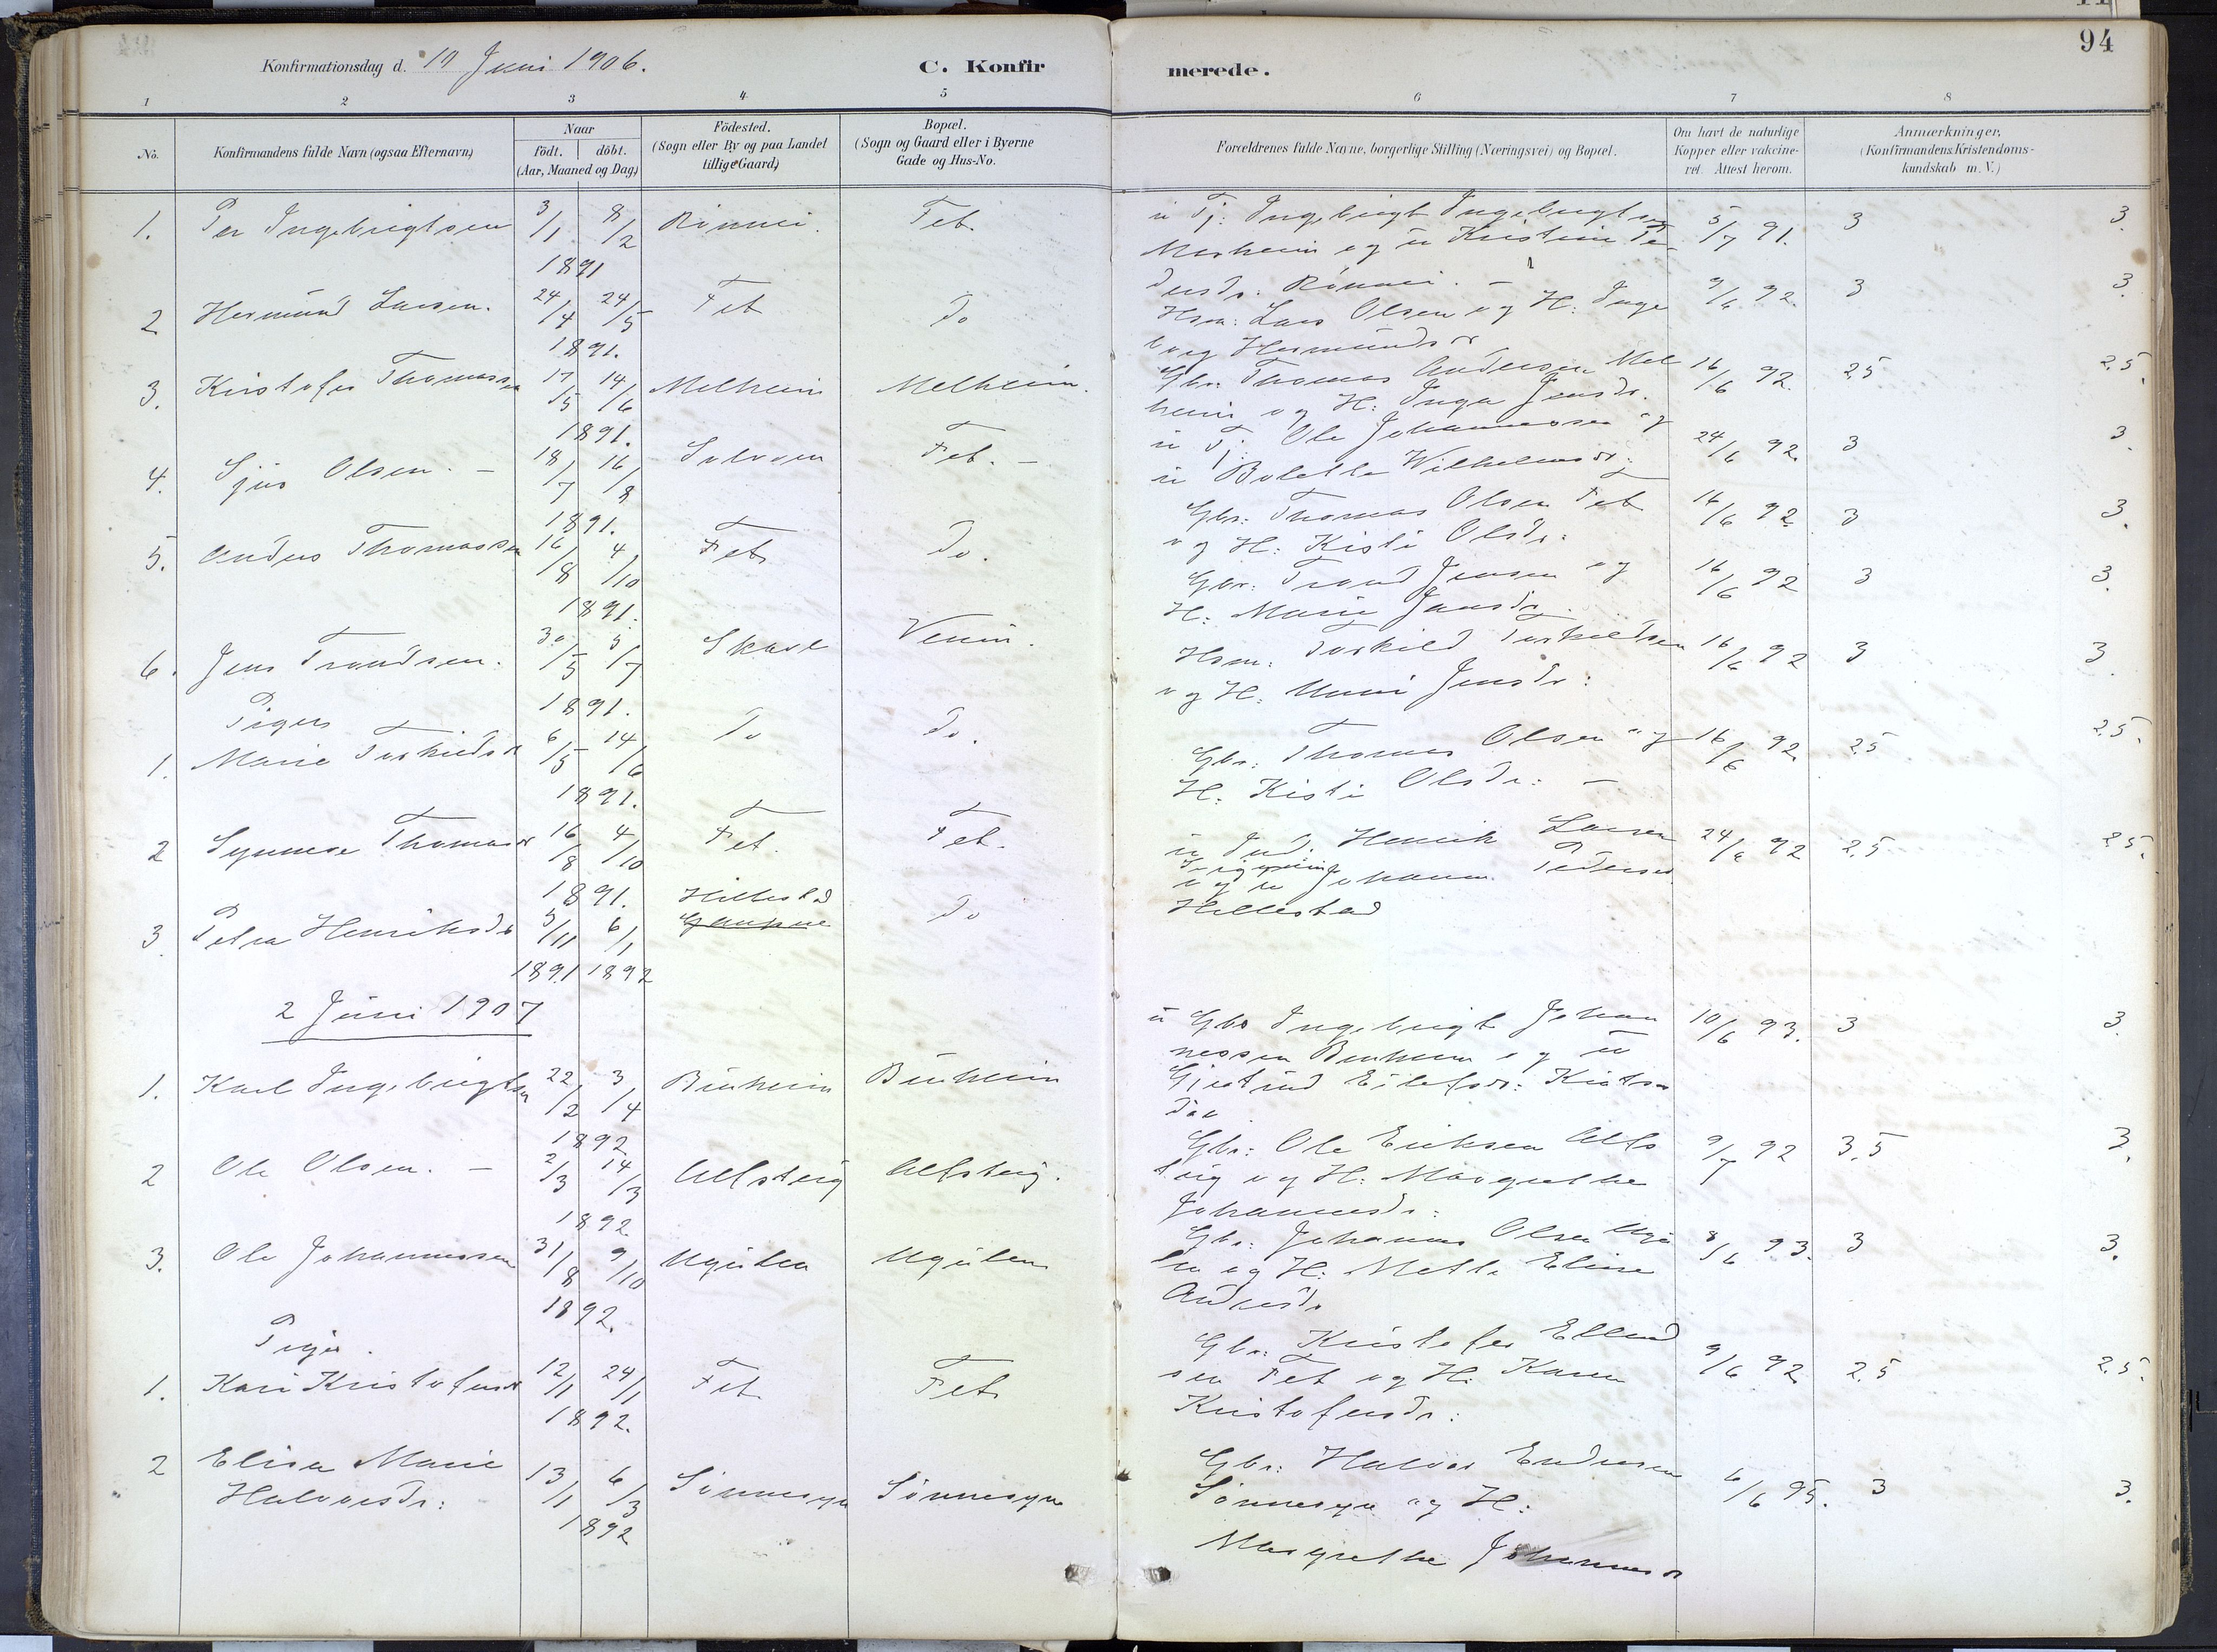 94
Konfirmationsdag d. 10 Juni 1906.
C. Konfirmerede.
1 2 3 4 5 6 7 8
No.
Konfirmandens fulde Navn (ogsaa Efternavn)
Naar
födt. döbt.
(Aar, Maaned og Dag)
Födested.
(Sogn eller By og paa Landet
tillige Gaard)
Bopæl.
(Sogn og Gaard eller i Byerne
Gade og Hus-No.
Forældrenes fulde Navne, borgerlige Stilling (Næringsvei) og Bopæl.
Om havt de naturlige
Kopper eller vakcine-
ret. Attest herom.
Anmærkninger,
(Konfirmandens Kristendoms-
kundskab m. V.)
1. Per Ingebrigtsen 3/1 8/2 1891 Rönnei. Fet.
u Tj: Ingebrigt Ingebrigtsen
Morheim og u Kristine Pe-
dersdr. Rönnei. -
5/7 91. 3 3.
2 Hermund Larsen. 24/4 24/5 1891. Fet do
Hsm: Lars Olsen og H: Inge
borg Hermundsdr
9/6 92. 3 3.
3. Kristofer Thomassen 17/5 14/6 1891. Melheim Melheim.
Gbr: Thomas Andersen Mel
heim og H: Inga Jensdr.
16/6 92. 2,5 2,5.
4. Sjur Olsen. - 18/7 16/8 1891. Solvorn Fet. -
u Tj: Ole Johannessen og
u Bolette Wilhelmsdr:
24/6 92. 3 3.
5. Anders Thomassen 16/8 4/10 1891. Fet do.
Gbr: Thomas Olsen Fet
og H: Kisti Olsdr:
16/6 92. 3 3.
6. Jens Trondsen. 30/5 5/7 1891. Skare
Gbr: Trond Jensen og
H: Marie Jensdr
16/6 92 3 3.
Piger
1. Marie Torkildsdr 6/5 14/6 1891. do do.
Hsm: Torkild Torkildsen
og H: Unni Jensdr:
16/6 92 3 3.
2 Synneve Thomasdr 16/8 4/10 1891. Fet. Fet.
Gbr: Thomas Olsen og
H: Kisti Olsdr: -
16/6 92. 2,5 2,5.
3 Petra Henriksdr 3/11 6/1 1891 1892 Hillestad Gaupne do
u Ind. Henrik Larsen
og u Johanne Pedersdr
Hillestad
24/6 92 2,5 2,5.
2 Juni 1907
1. Karl Ingebrigtsen 22/2 3/4 1892 Buheim Buheim
u Gbr Ingebrigt Johan
nessen Buheim og u
Gjertrud Eilefsdr:
10/6 93. 3 3.
2 Ole Olsen. - 2/3 14/3 1892 Alsteig Alsteig.
Gbr: Ole Eriksen Als
teig og H: Margrethe
Johannesdr:
9/7 92 3,5 3.
3. Ole Johannessen 31/8 9/10 1892. Ugulen Ugulen
Gbr. Johannes Olsen Ugu
len og H: Mette Elise
Andersdr
8/6 93. 3 3.
Piger.
1. Kari Kristofersdr 12/1 24/1 1892. Fet Fet
Gbr. Kristofer Ellend
sen Fet og H: Karen
Kristofersdr:
9/6 92 2,5 2,5.
2 Elisa Marie
Halvorsdr: 13/1 6/3 1892 Sönnesyn Sönnesyn
Gbr: Halvor Endresen
Sönnesyn og H:
Margrethe Johannesdr
6/6 95. 3 3.